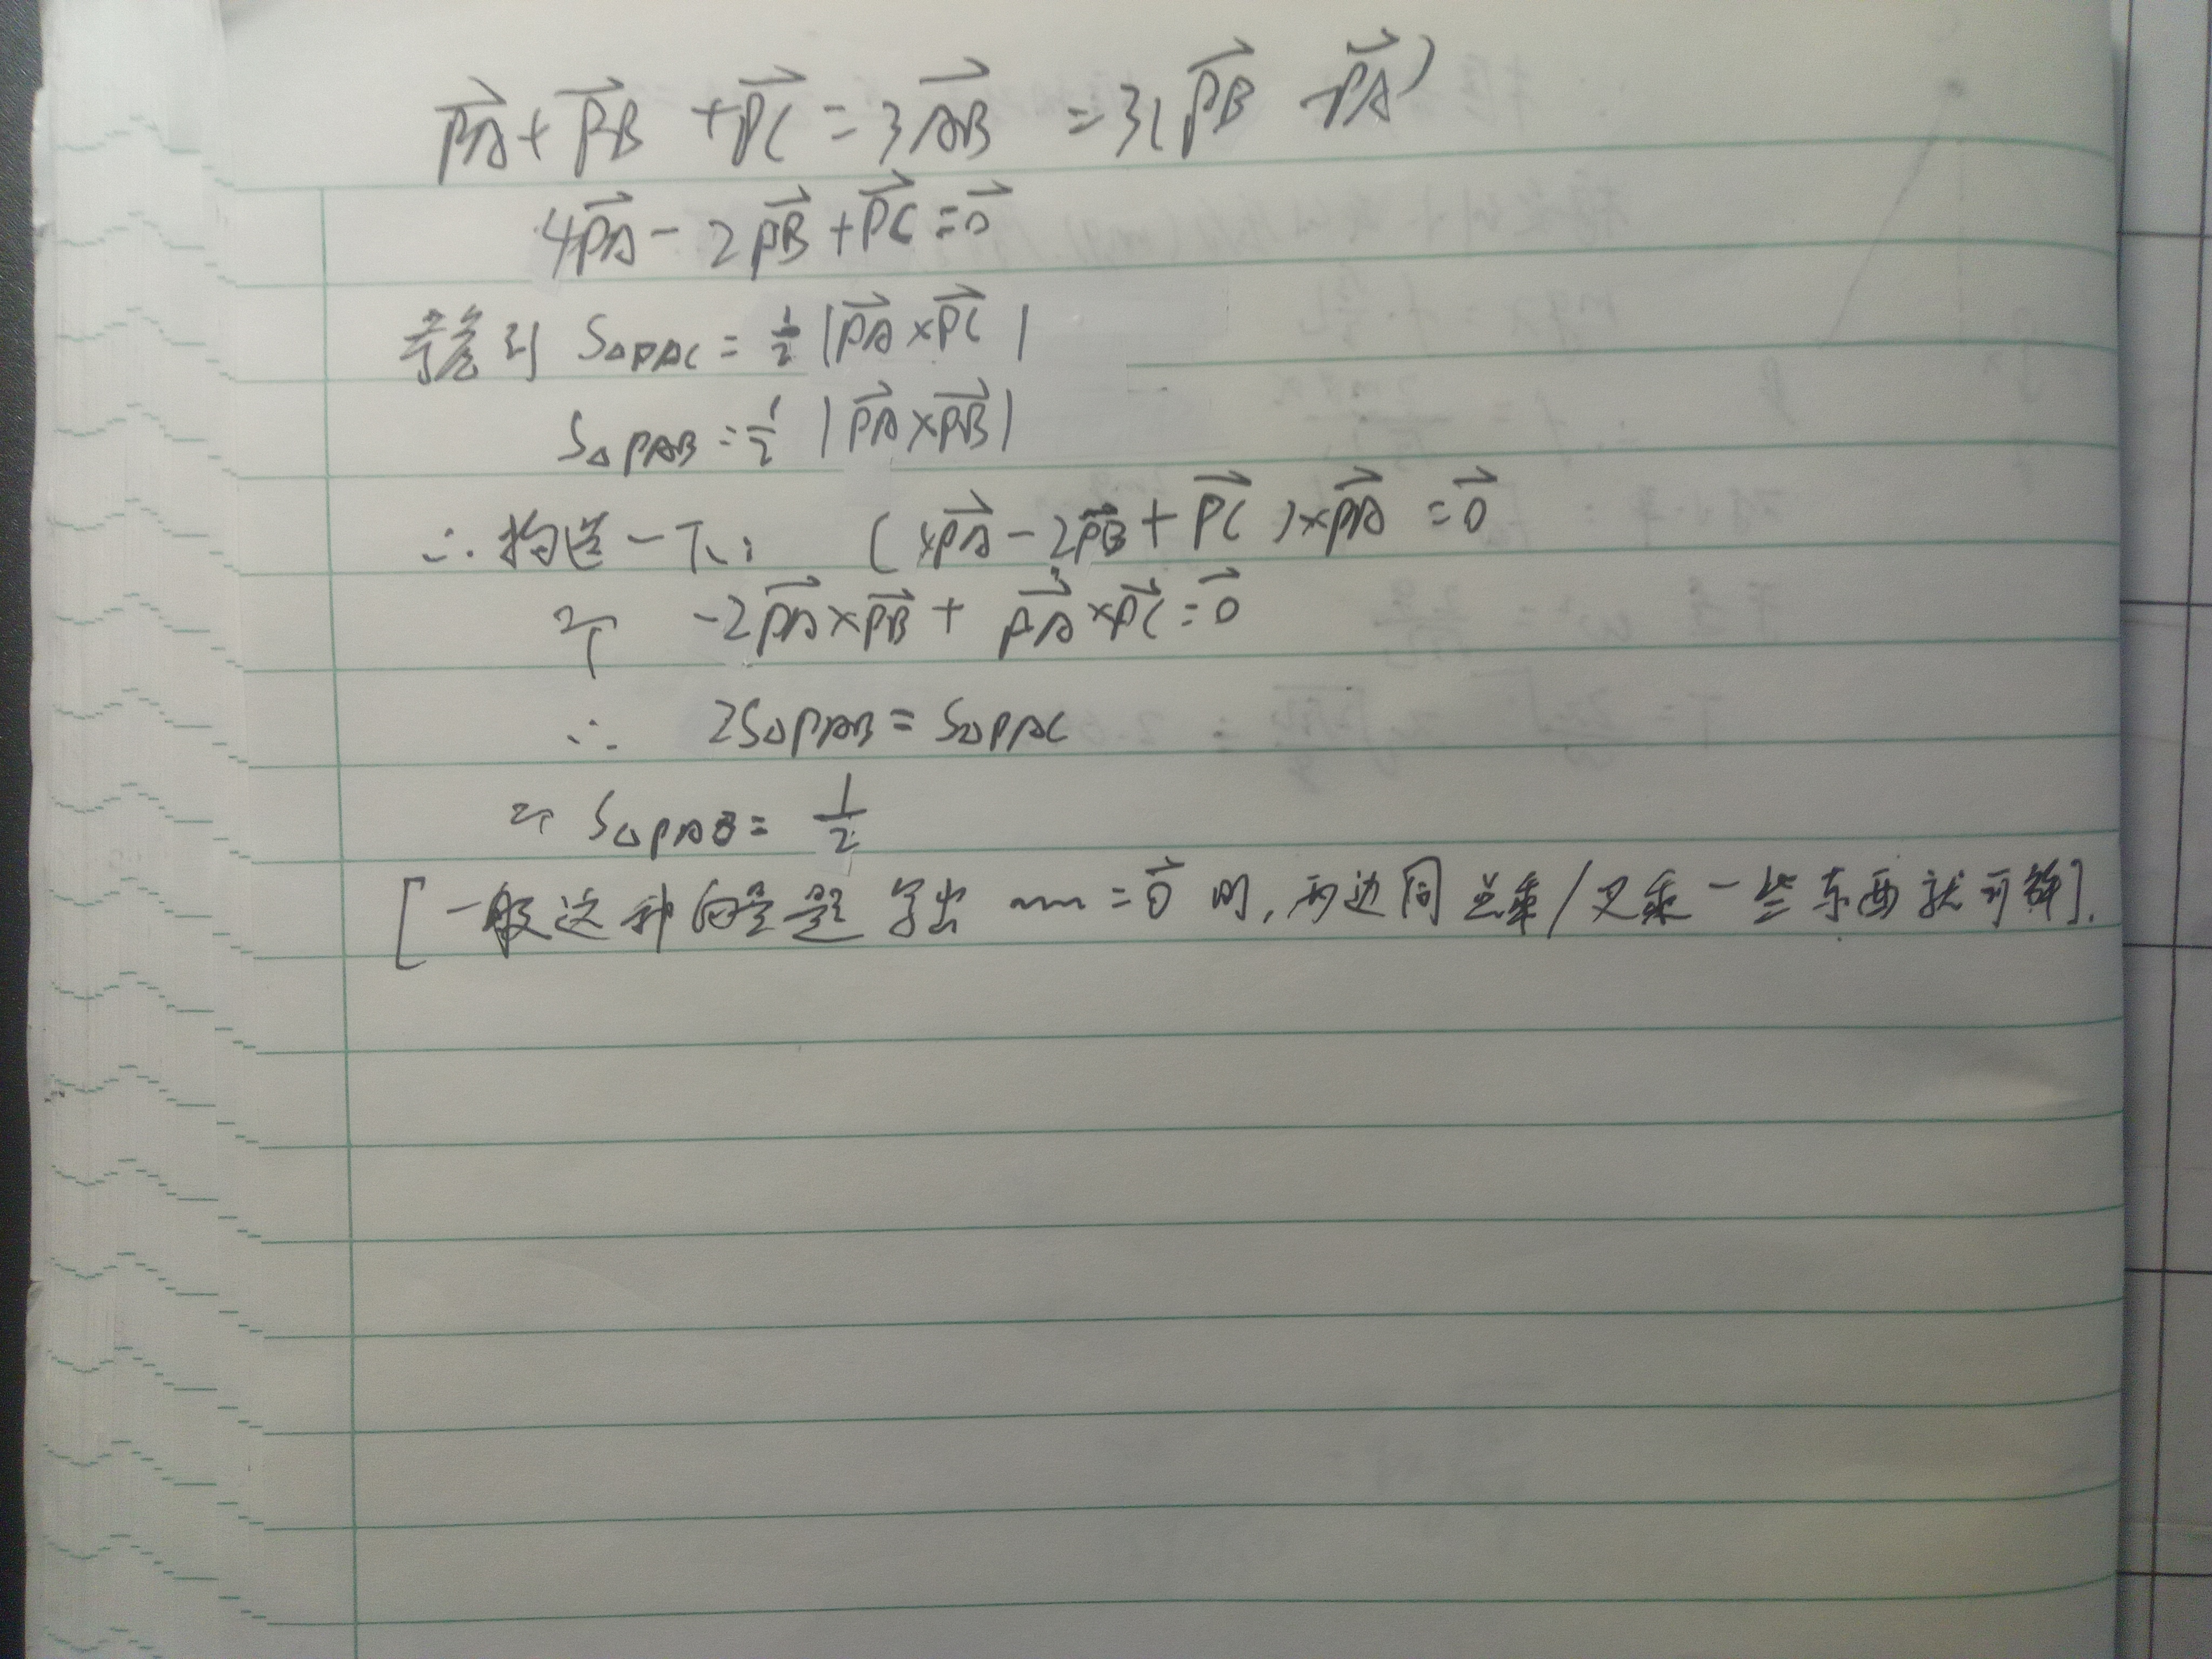 PA + PB + PC = 3AB = 3(PB - PA)
4PA - 2PB + PC = 0
考虑到 S△PAC = 1/2 |PA×PC|
S△PAB = 1/2 |PA×PB|
∴构造一下: (4PA - 2PB + PC)×PA = 0
有 -2PA×PB + PA×PC = 0
∴ 2S△PAB = S△PAC
有 S△PAB = 1/2
[一般这种向量题 写出 ~~ = 0 时, 两边同点乘/叉乘一些东西就可解].